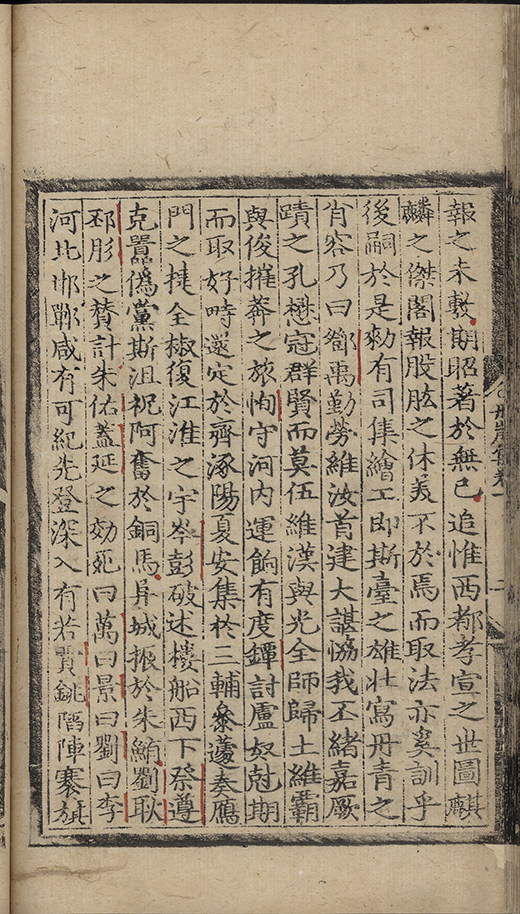 報之未斁期昭著於無已追惟西都孝宣之世圖麒
麟之傑閣報股肱之休美不於焉而取法亦奚訓乎
後嗣於是勑有司集繪工即斯臺之雄壯寫丹青之
肖容乃曰鄧禹勤勞維汝首建大謀恊我丕緒嘉厥
蹟之孔懋冠群賢而莫伍維漢與光全師歸土維霸
與俊摧莽之旅恂守河内運餉有度鐔討盧奴尅期
而取好畤遂定於齊涿陽夏安集於三輔叅蘧奏鴈
門之捷全椒復江淮之宇岑彭破述樓船西下祭遵
克嚻僞黨斯沮祝阿奮於銅馬舁城振於朱鮪劉耿
邳肜之賛計朱佑蓋延之効死曰萬曰景曰劉曰李
河北邯鄲咸有可紀先登深入有若賈銚䧟陣搴旗
丹崖集卷一
二